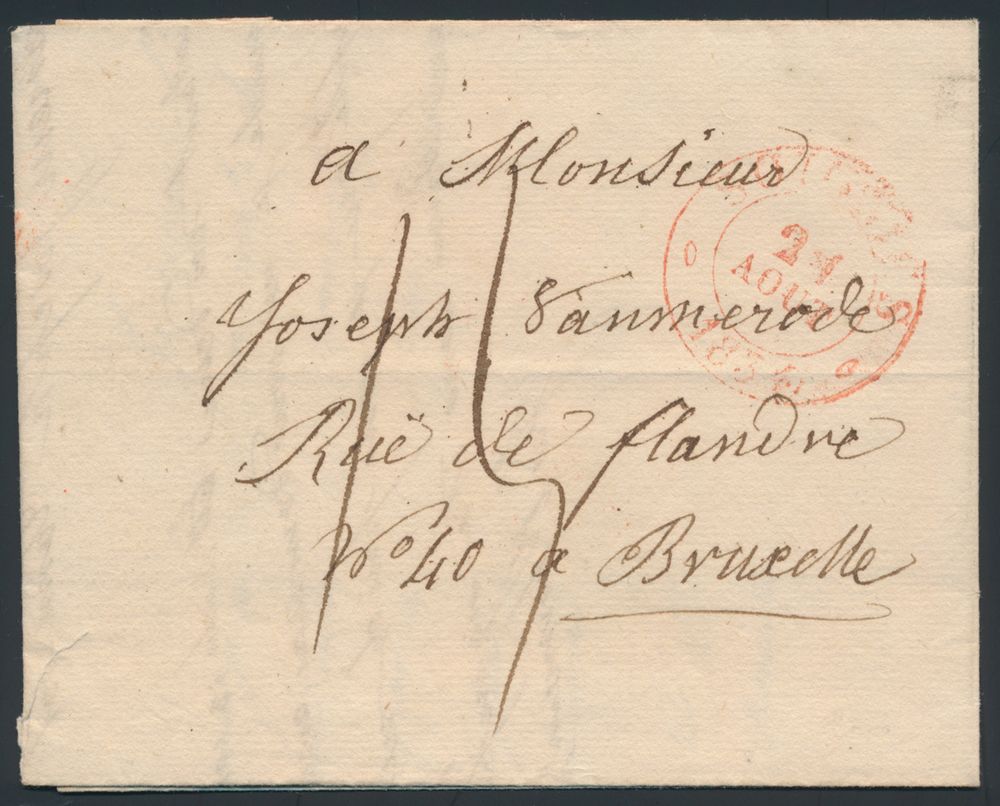 a Monsieur
Joseph Vanmerode
Ruë de flandre
No 40 a Bruxelle
15
AOUT